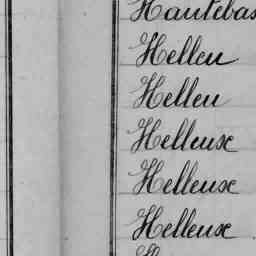 Hautebas
Helleu
Helleu
Helleux
Helleux
Helleux